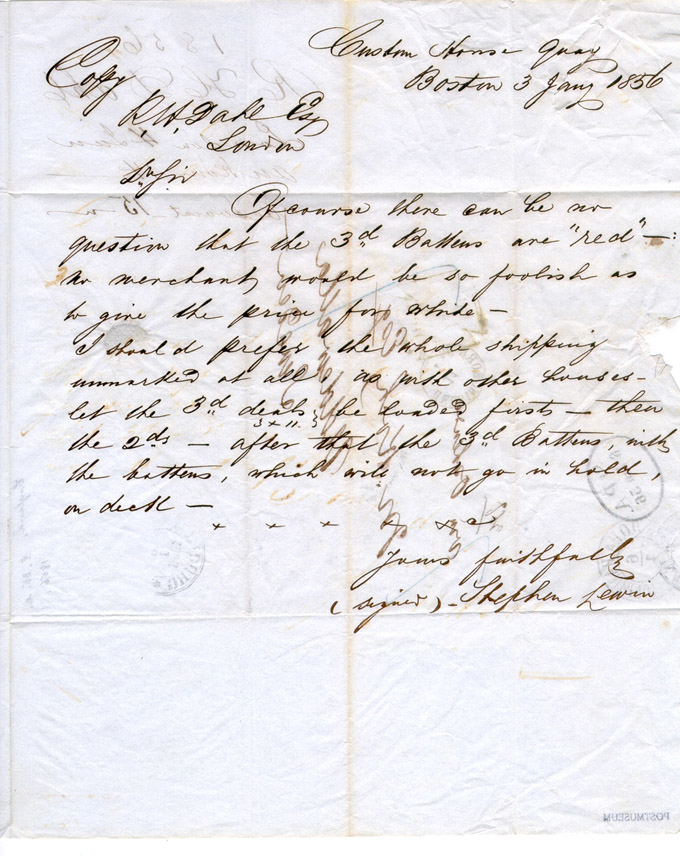 Custom House Quay
Boston 3 Jany 1856
Copy
R. H. Dahl Esq
London
Dr Sir
Of course there can be no
question that the 3d Battens are "red" —
no merchant would be so foolish as
to give the price for white —
I should prefer the whole shipping
unmarked at all, as with other houses —
let the 3d deals be loaded first — then
3 x 11
the 2ds — after that the 3d Battens, with
the battens, which will not go in hold,
on deck —
x x x x x
Yours faithfully
(signed) - Stephen Lewin
POSTMUSEUM